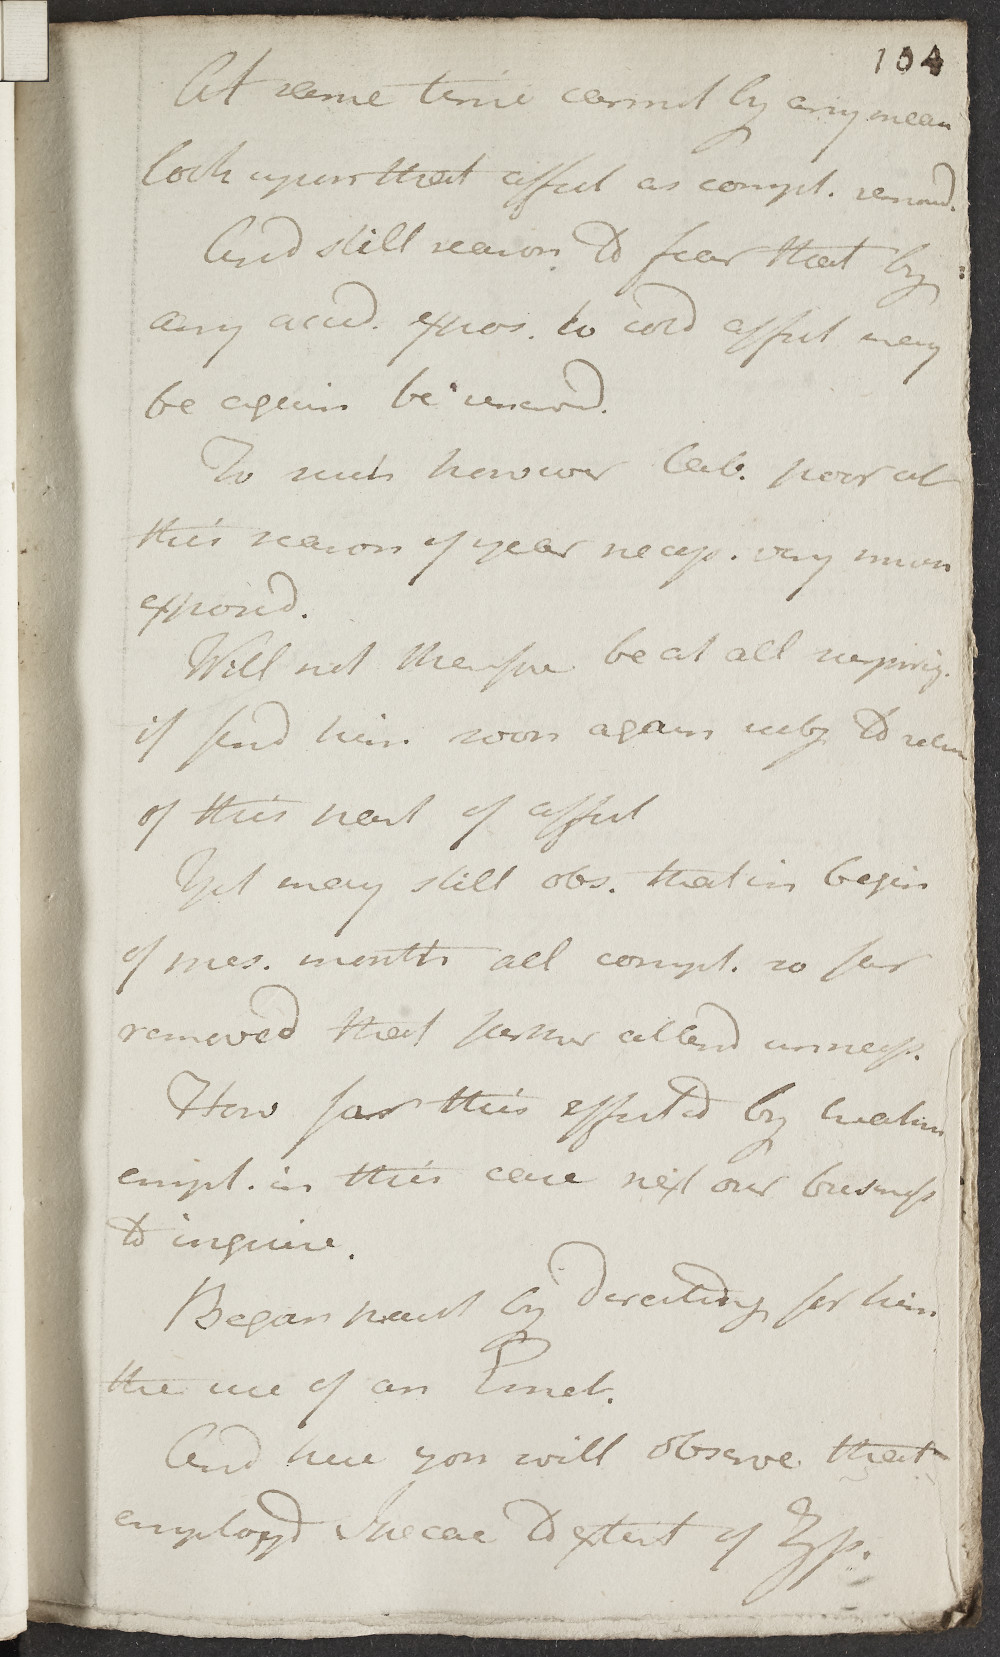 104
At same time cannot by any mean
look upon that affect as compt. removd.
And still reason to fear that by
any accid. expos. to cold affect may
be again be renewd.
To such however lab. poor at
this season of year necess. very much
exposed.
Will not therefore be at all surprisg.
if find him soon again subj to return
of this part of affect
Yet may still obs. that in begin
of pres. month all compt. so far
removed that farther attend unnecess.
How far this effected by medicin
empl. in this case next our business
to inquire.
Began pract by directing for him
the use of an Emet.
And here you will observe that
employd Ipecac to extent of